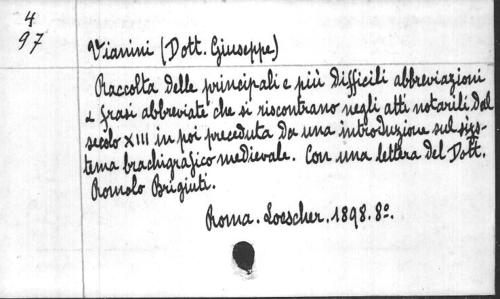 4
97
Vianini (Dott. Giuseppe)
Raccolta delle principali e più difficili abbreviazioni
e frasi abbreviate che si riscontrano negli atti notarili dal
secolo XIII in poi preceduta da una introduzione sul siss-
tema brachigrafico medievale. Con una lettera del Dott.
Romolo Brigiuti.
Roma. Loescher. 1898. 8º.